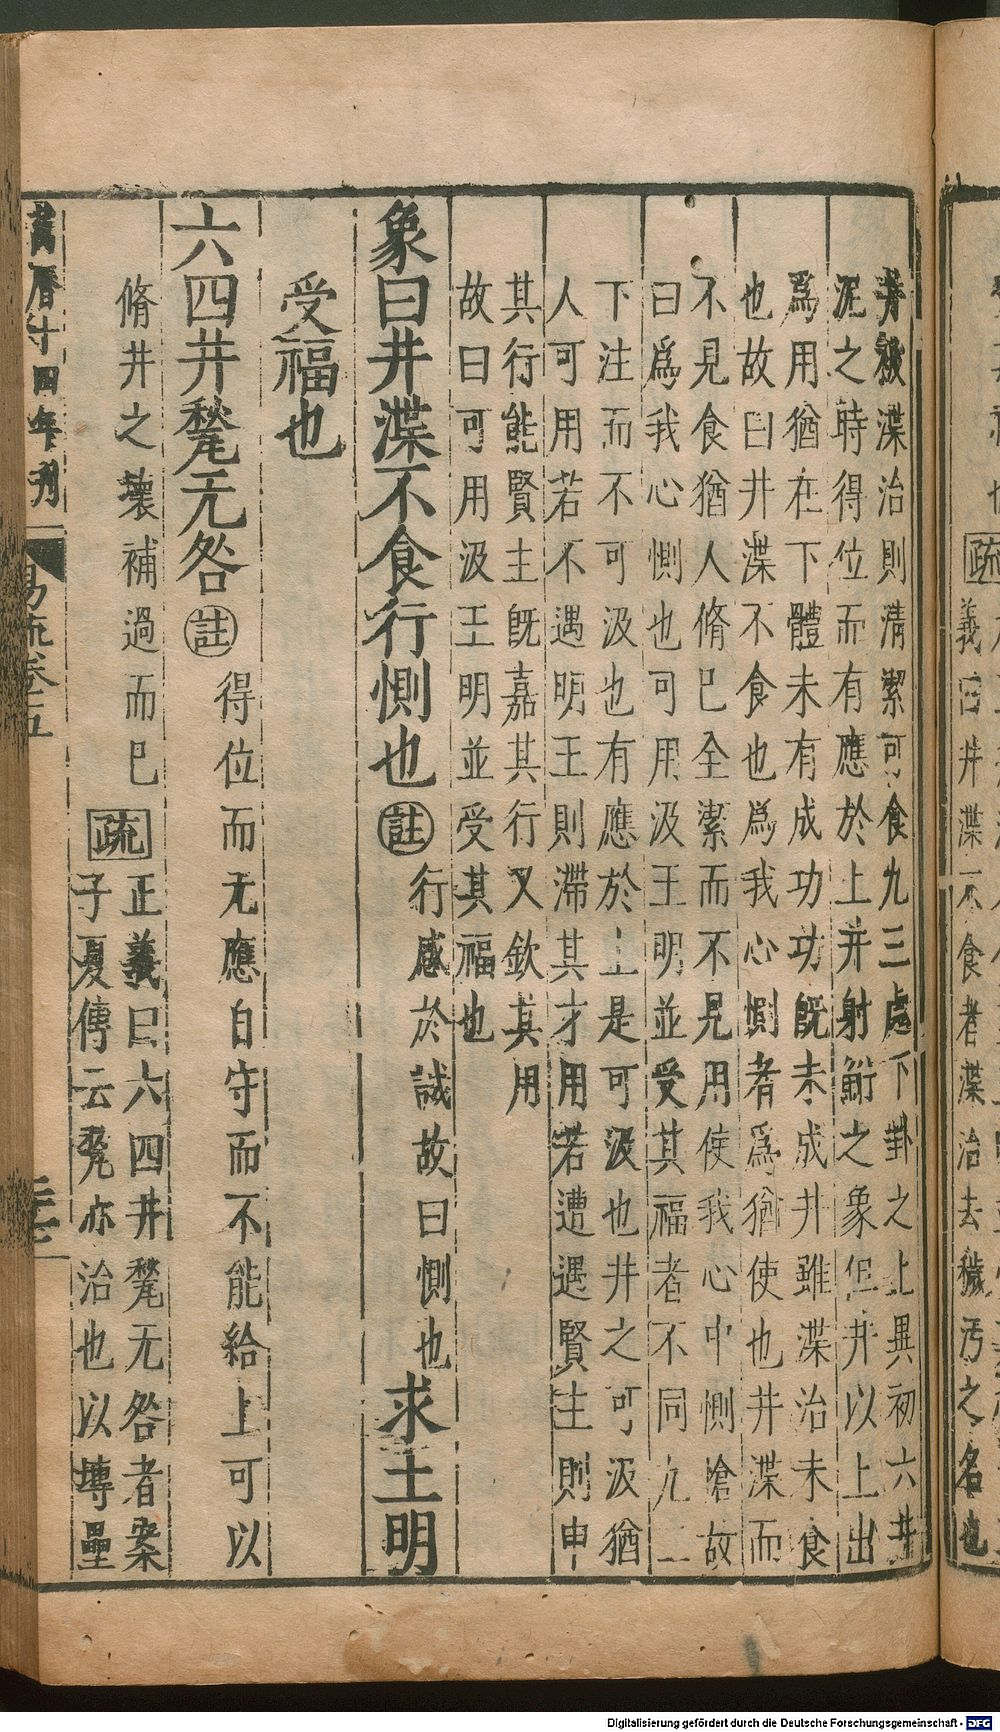 井被渫治則清潔可食九三處下卦之上異初六井
泥之時得位而有應於上非射鮒之象但井以上出
爲用猶在下體未有成功功旣未成井雖渫治未食
也故曰井渫不食也爲我心惻者爲猶使也井渫而
不見食猶人脩巳全潔而不見用使我心中惻愴故
曰爲我心惻也可用汲王明並受其福者不同九二
下注而不可汲也有應於上是可汲也井之可汲猶
人可用若不遇明王則滯其才用若遭遇賢主則申
其行能賢主旣嘉其行又欽其用
故曰可用汲王明並受其福也
象曰井渫不食行惻也
註
行感於誠故曰惻也
求王明
受福也
六四井甃无咎
註
得位而无應自守而不能給上可以
脩井之壞補過而巳
疏
正義曰六四井甃无咎者案
子夏傳云甃亦治也以塼壘
萬曆十四年刊
易疏卷之五
義曰井渫不食者渫治去穢汚之名也
疏
Digitalisierung gefördert durch die Deutsche Forschungsgemeinschaft - DFG